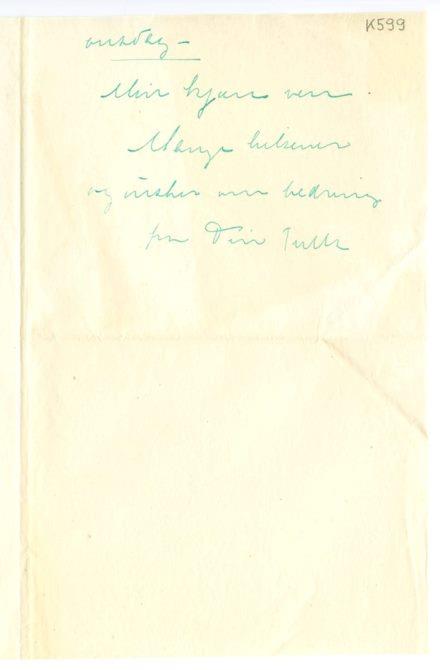 K599
onsdag –
Min kjære ven.
Mange hilsener
og ønsker om bedring
fra Din Tulla